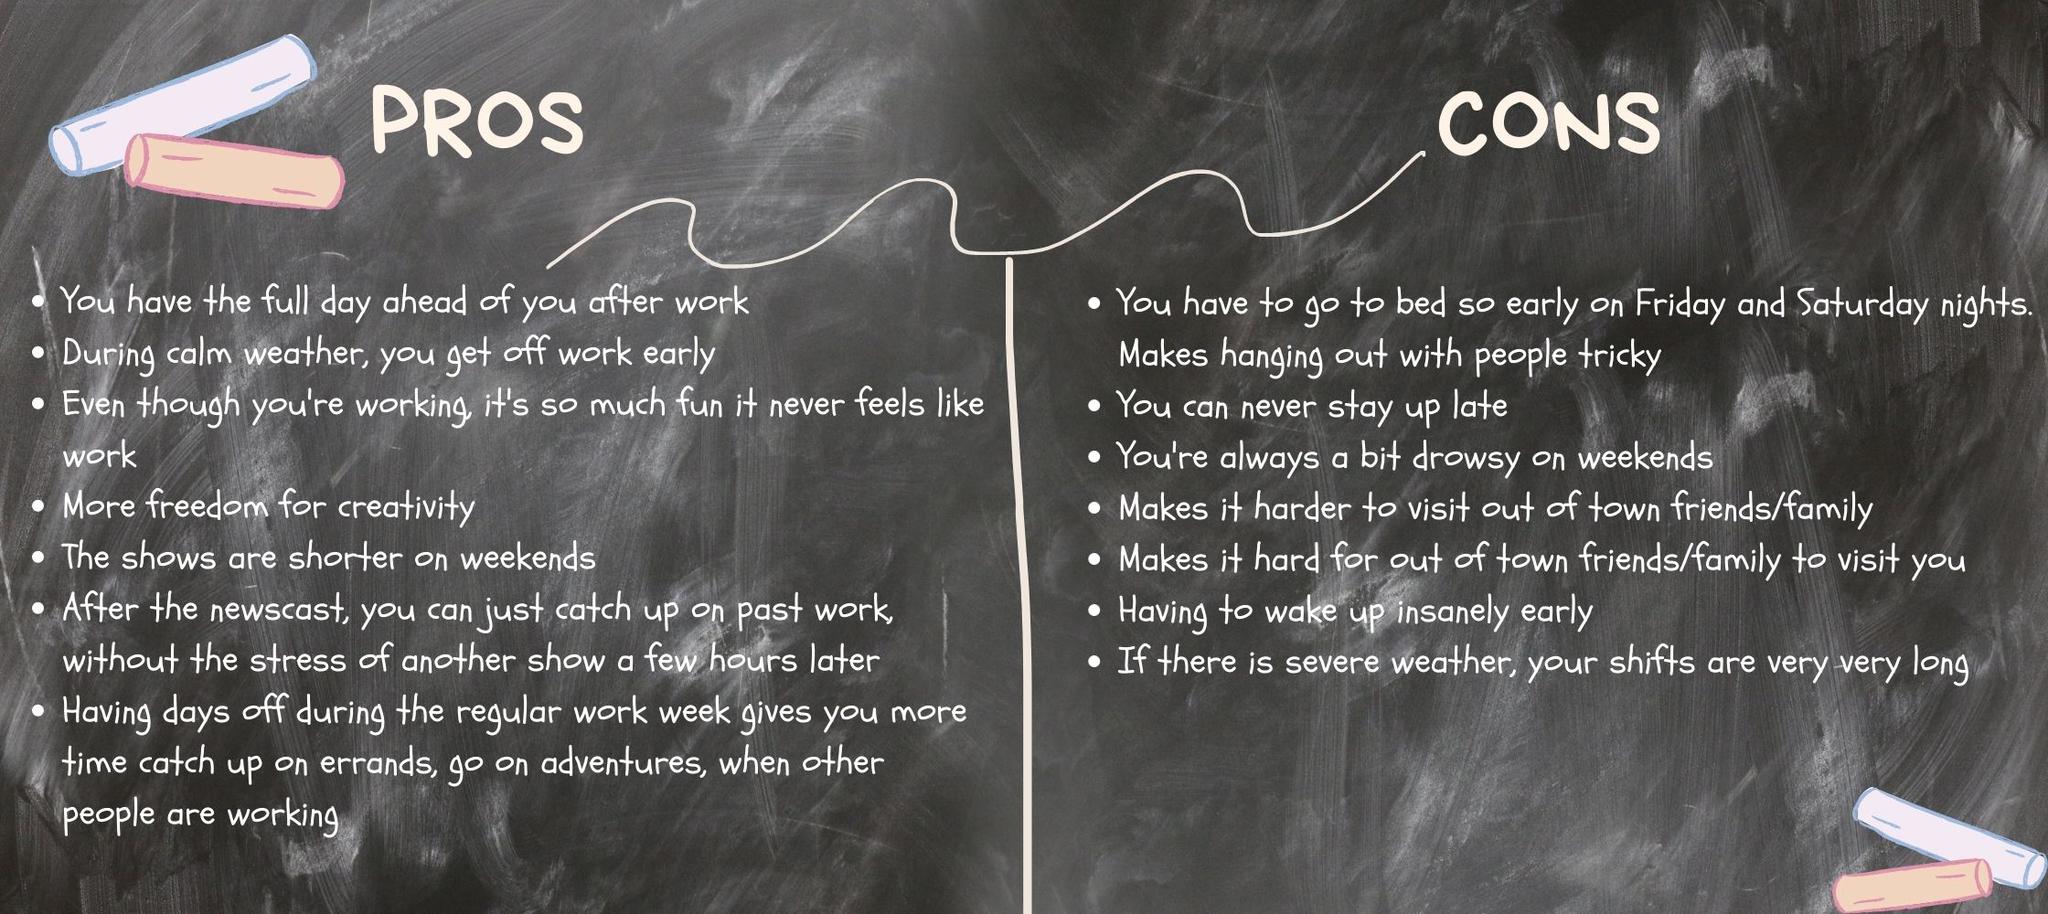 PROS
• You have the full day ahead of you after work
• During calm weather, you get off work early
• Even though you're working, it's so much fun it never feels like
work
• More freedom for creativity
• The shows are shorter on weekends
• After the newscast, you can just catch up on past work,
without the stress of another show a few hours later
• Having days off during the regular work week gives you more
time catch up on errands, go on adventures, when other
people are working
CONS
• You have to go to bed so early on Friday and Saturday nights.
Makes hanging out with people tricky
• You can never stay up late
• You're always a bit drowsy on weekends
• Makes it harder to visit out of town friends/family
• Makes it hard for out of town friends/family to visit you
• Having to wake up insanely early
• If there is severe weather, your shifts are very very long